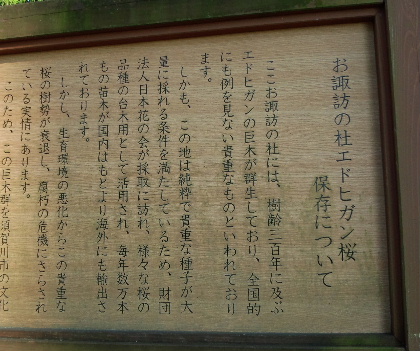 お諏訪の杜エドヒガン桜
保存について
ここお諏訪の杜には、樹齢三百年に及ぶ
エドヒガンの巨木が群生しており、全国的
にも例を見ない貴重なものといわれており
ます。
しかも、この地は純粋で貴重な種子が大
量に採れる条件を満たしているため、財団
法人日本花の会が採取に訪れ、様々な桜の
品種の台木用として活用され、毎年数万本
もの苗木が国内はもとより海外にも輸出さ
れております。
しかし、生育環境の悪化からこの貴重な
桜の樹勢が衰退し、腐朽の危機にさらされ
ている実情にあります。
このため、この巨木群を須賀川市の文化